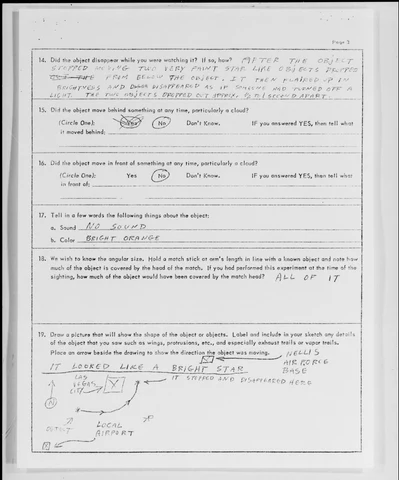 Page 5
14. Did the object disappear while you were watching it? If so, how? AFTER THE OBJECT
STOPPED MOVING TWO VERY FAINT STAR LIKE OBJECTS DROPPED
FROM BELOW THE OBJECT. IT THEN FLAIRED UP IN
BRIGHTNESS AND DISAPPEARED AS IF SOMEONE HAD TURNED OFF A
LIGHT. THE TWO OBJECTS DROPPED OUT APART.
15. Did the object move behind something at any time, particularly a cloud?
(Circle One): Yes No Don't Know. IF you answered YES, then tell what
it moved behind:
16. Did the object move in front of something at any time, particularly a cloud?
(Circle One): Yes No Don't Know. IF you answered YES, then tell what
in front of:
17. Tell in a few words the following things about the object:
a. Sound NO SOUND
b. Color BRIGHT ORANGE
18. We wish to know the angular size. Hold a match stick at arm's length in line with a known object and note how
much of the object is covered by the head of the match. If you had performed this experiment at the time of the
sighting, how much of the object would have been covered by the match head? ALL OF IT
19. Draw a picture that will show the shape of the object or objects. Label and include in your sketch any details
of the object that you saw such as wings, protrusions, etc., and especially exhaust trails or vapor trails.
Place an arrow beside the drawing to show the direction the object was moving.
NELLIS
AIR FORCE
BASE
IT LOOKED LIKE A BRIGHT STAR
IT STOPPED AND DISAPPEARED HERE
LAS
VEGAS
CITY
N
LOCAL
AIRPORT